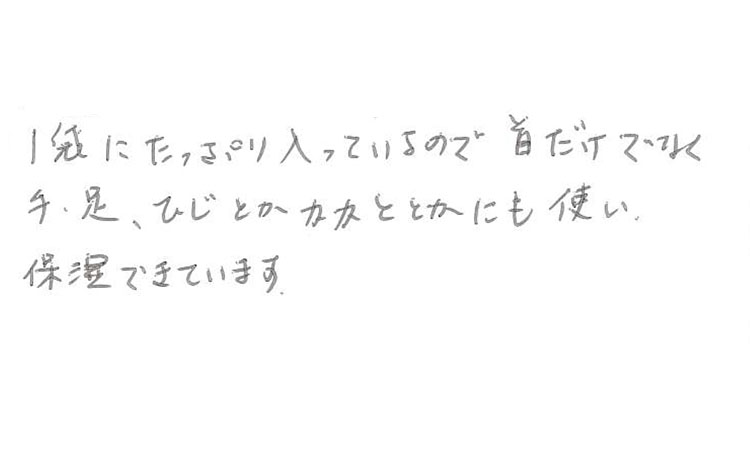 1袋にたっぷり入っているので首だけでなく
手・足、ひじとかカカととかにも使い、
保湿できています。